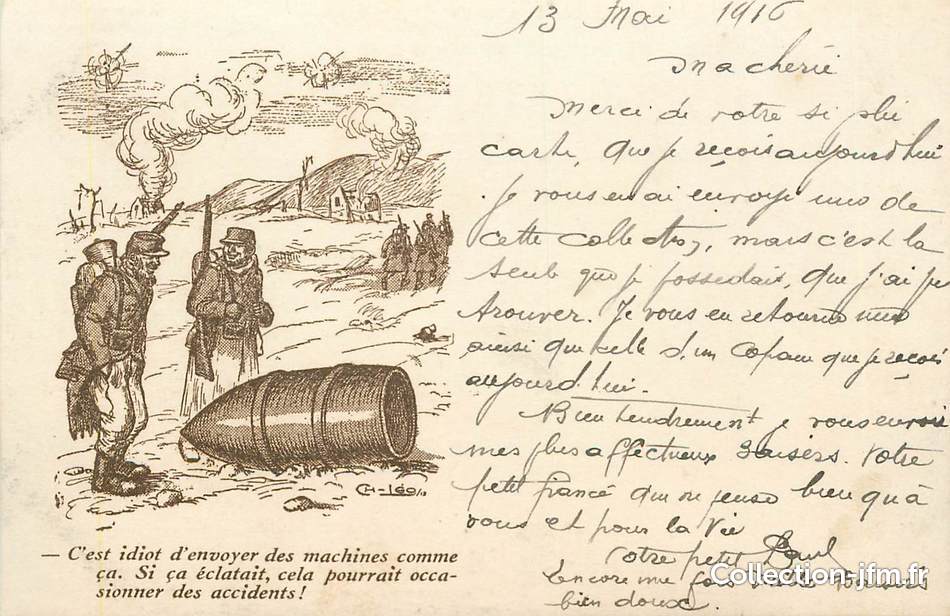 13 Mai 1916
Ma chérie
Merci de votre si
carte, que je reçois aujourd'hui
je vous en ai envoyé une de
cette collection, mais c'est la
seule que je possedais, que j'ai pu
trouver. Je vous en retourne une
ainsi que celle d'un copain que je reçois
aujourd'hui.
Bien tendrement je vous envoie
mes plus affectueux Baisers. Votre
petit fiancé qui ne pense bien qu'à
vous et pour la Vie
Votre petit Paul
Encore une fois
bien doux.
CH-Léo
— C'est idiot d'envoyer des machines comme
ça. Si ça éclatait, cela pourrait occa-
sionner des accidents!
Collection-jfm.fr